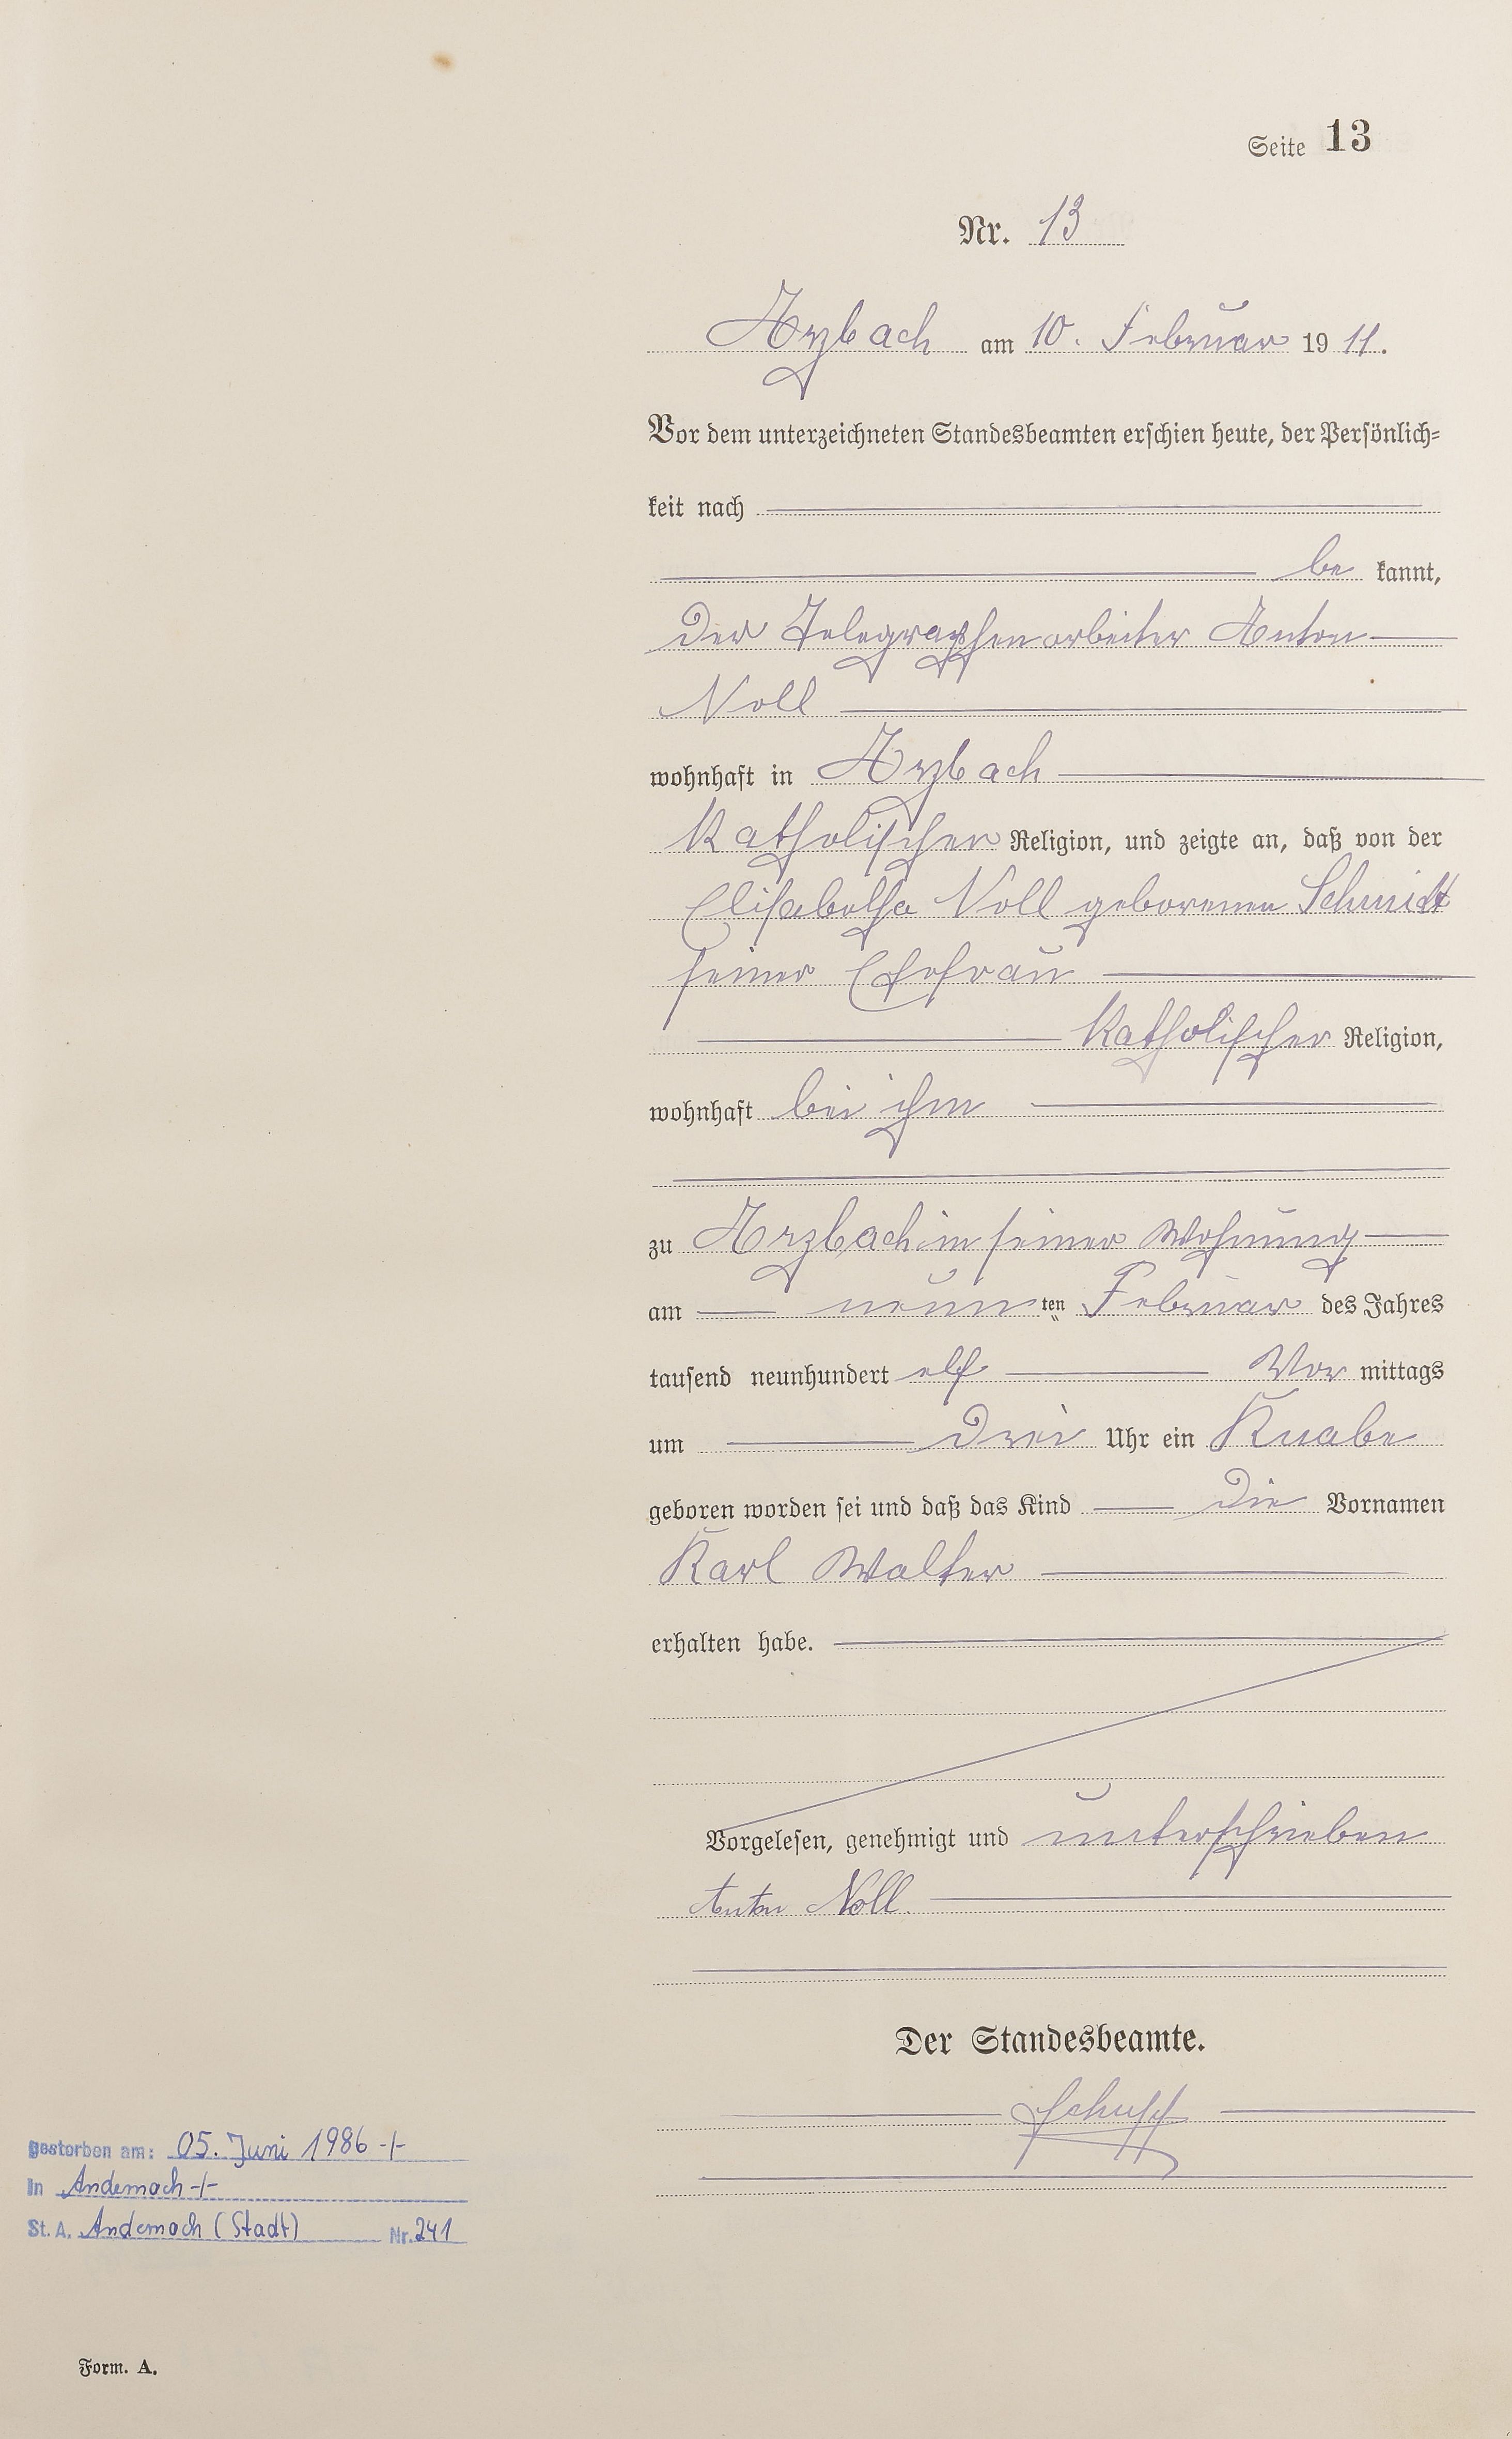 Seite 13
Nr. 13
Arzbach am 10. Februar 1911.
Vor dem unterzeichneten Standesbeamten erschien heute, der Persönlich=
keit nach
be kannt,
der Telegraphenarbeiter Anton
Noll
wohnhaft in Arzbach
katholischer Religion, und zeigte an, daß von der
Elisabetha Noll geborenen Schmidt
seiner Ehefrau
katholischer Religion,
wohnhaft bei ihm
zu Arzbach in seiner Wohnung
am neun ten Februar des Jahres
tausend neunhundert elf Vor mittags
um drei Uhr ein Knabe
geboren worden sei und daß das Kind die Vornamen
Karl Walter
erhalten habe.
Vorgelesen, genehmigt und unterschrieben
Anton Noll.
Der Standesbeamte.
gestorben am: 05. Juni 1986 -/-
in Andernach -/-
St. A. Andernach (Stadt) Nr. 241
Form. A.